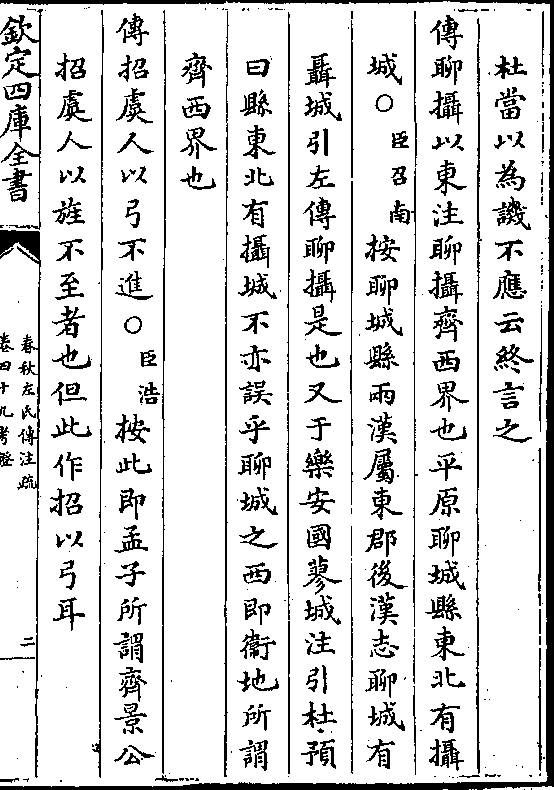 杜當以為譏不應云終言之
傳聊攝以東注聊攝齊西界也平原聊城縣東北有攝
城○臣召南按聊城縣兩漢屬東郡後漢志聊城有
聶城引左傳聊攝是也又于樂安國蓼城注引杜預
曰縣東北有攝城不亦誤乎聊城之西即衞地所謂
齊西界也
傳招虞人以弓不進○臣浩按此即孟子所謂齊景公
招虞人以旌不至者也但此作招以弓耳
欽定四庫全書
春秋左氏傳注疏
卷四十九考證
二